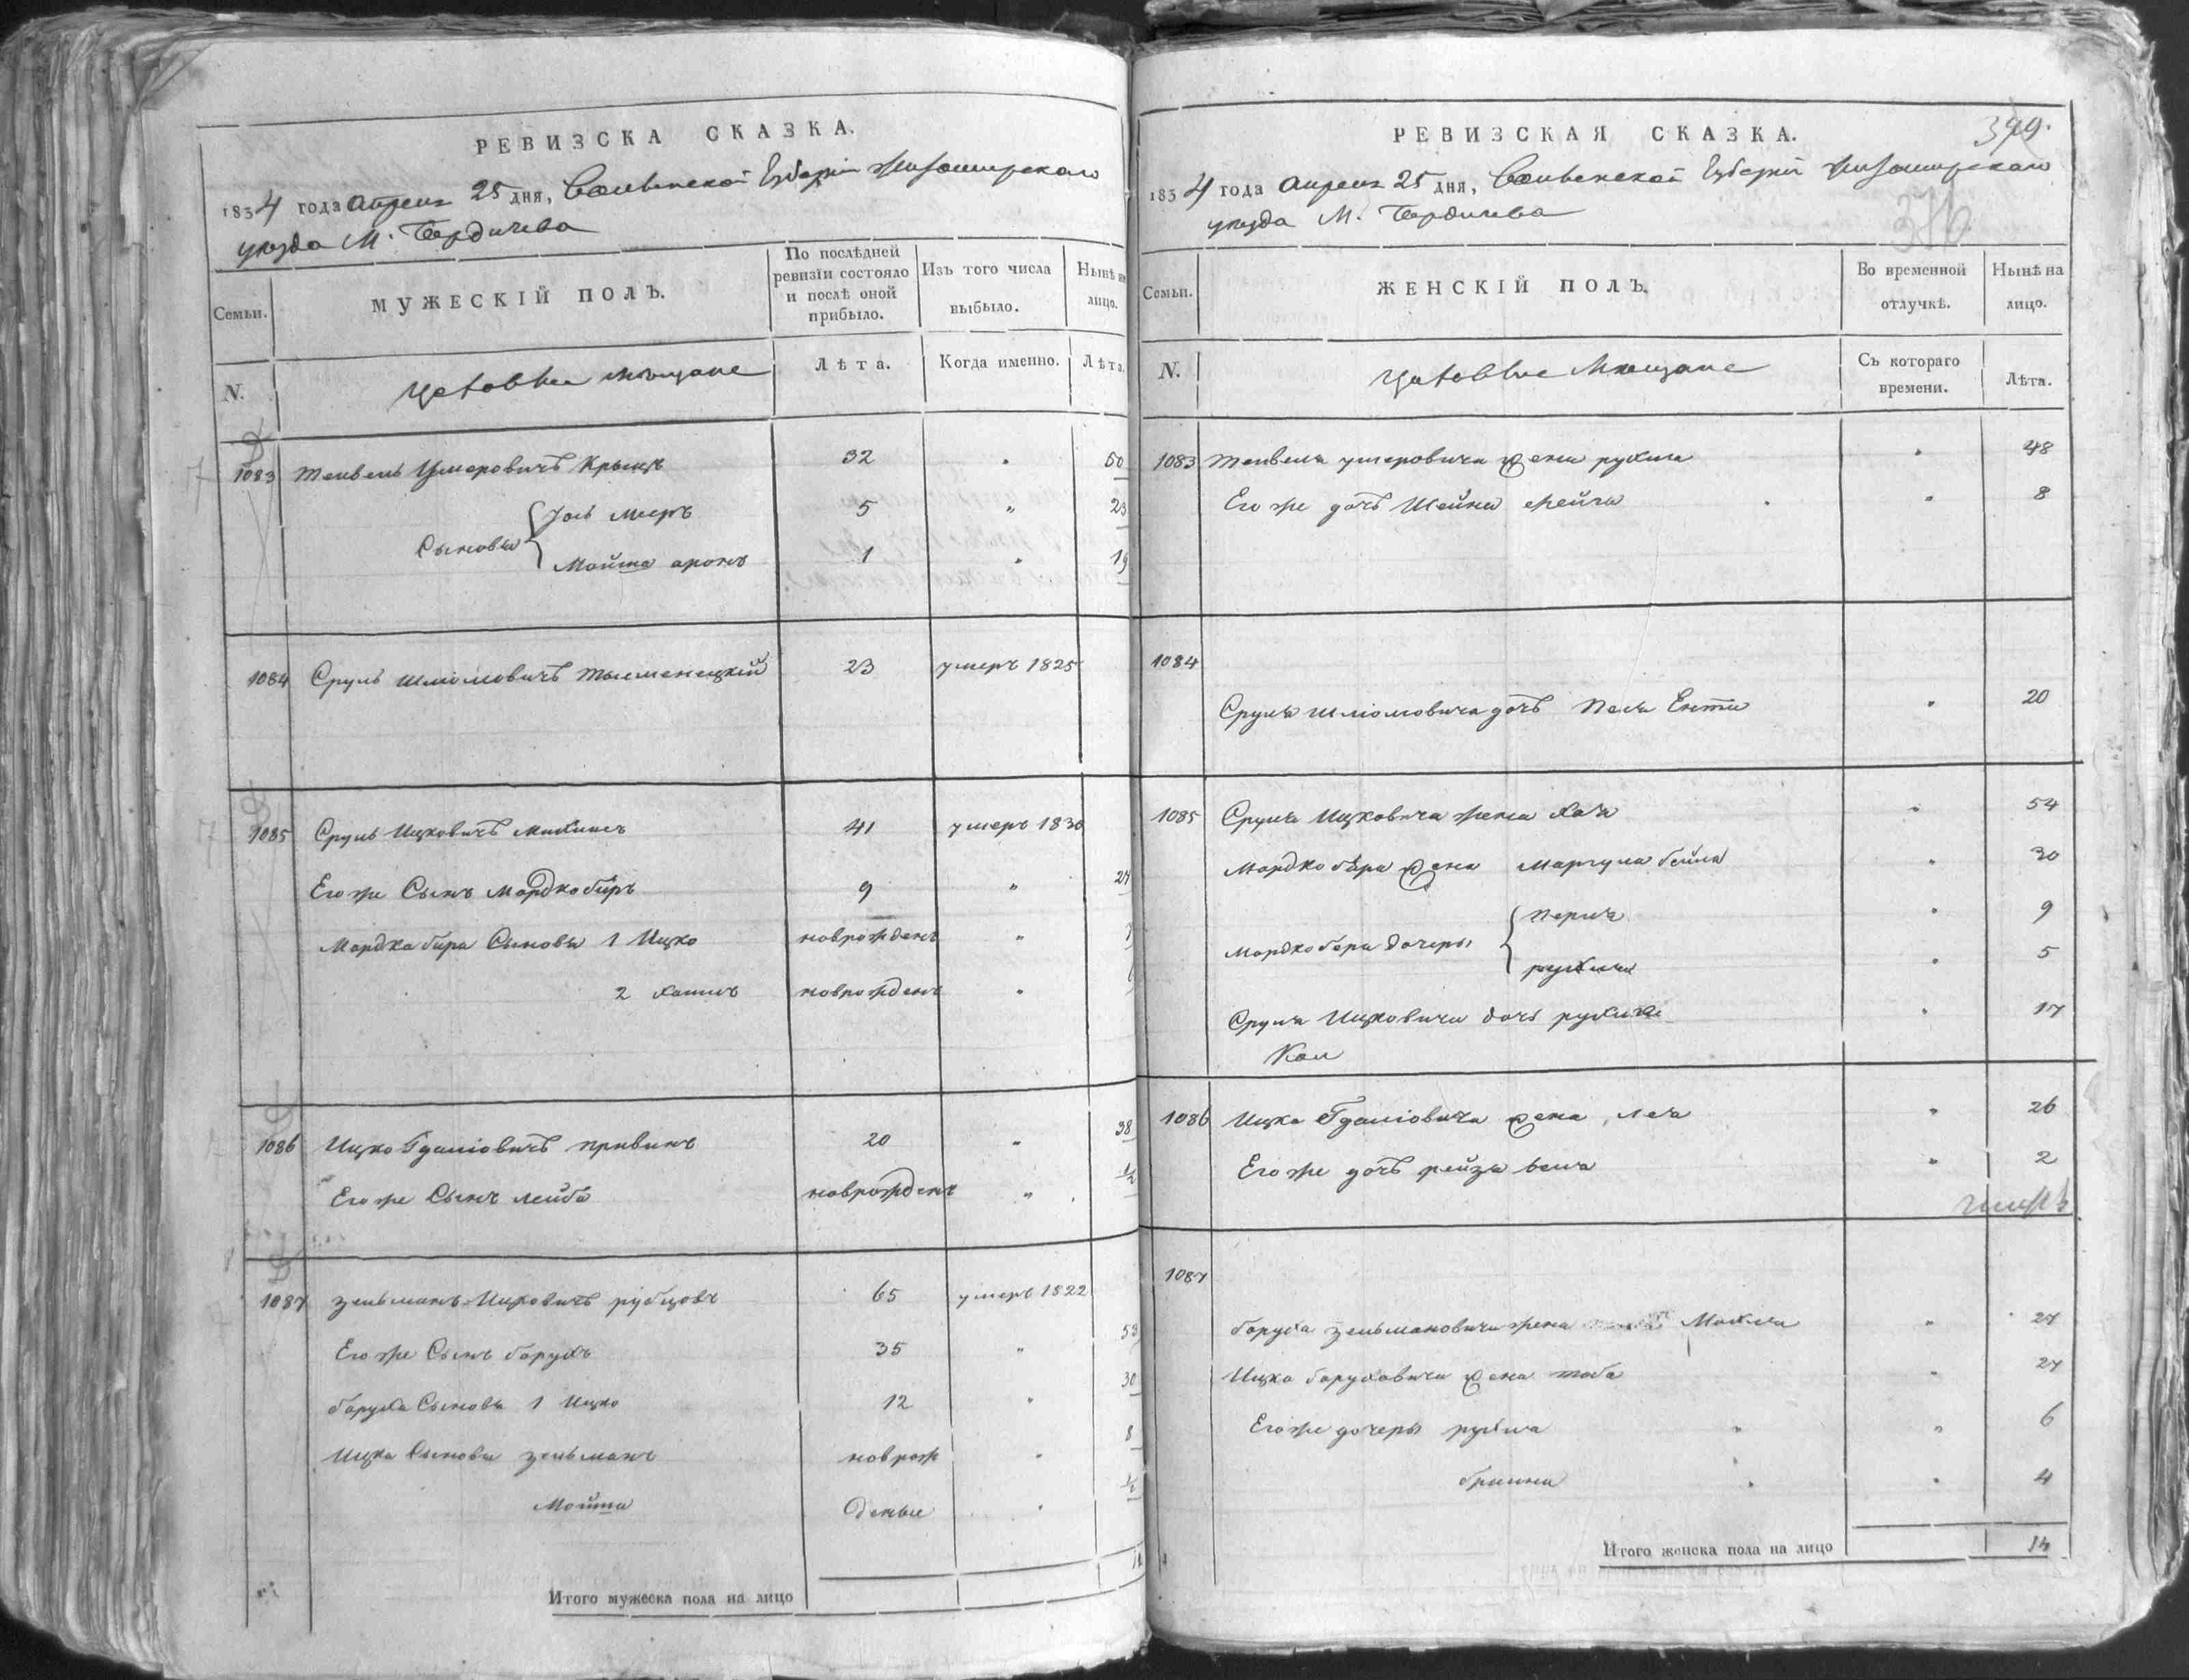 РЕВИЗСКА СКАЗКА.
1834 года Апреля 25 дня, Волынской Губернии Житомирского
уезда М. Бердичева
Семьи.
МУЖЕСКІЙ ПОЛЪ.
По послѣдней ревизіи состояло и послѣ оной прибыло.
Изъ того числа выбыло.
Нынѣ на лицо.
N.
Цеховые мещане
Лѣта.
Когда именно.
Лѣта.
1083 Тевель Умеровичъ Крыцъ 32 " 50
Сыновья
Іось Мееръ 5 " 23
Мойше аронъ 1 " 19
1084 Сруль Шліомовичъ Тысменецкій 23 умеръ 1825
1085 Сруль Ицковичъ 41 умеръ 1830
Его же Сынъ Мордко биръ 9 " 27
Мордка бира Сыновья 1 Ицко новорожденъ "
2 Хаимъ новорожденъ "
1086 Ицко Гдаліовичъ 20 " 38
Его же Сынъ лейба новорожденъ " ½
1087 Зельманъ Ицковичъ рубцовъ 65 умеръ 1822
Его же Сынъ борухъ 35 " 53
боруха Сыновья 1 Ицко 12 " 30
Ицка Сыновья зельманъ новрож " 8
Мойше деные " ½
Итого мужеска пола на лицо
РЕВИЗСКАЯ СКАЗКА.
399.
376
1834 года Апреля 25 дня, Волынской Губернии Житомирского
уезда М. Бердичева
Семьи.
ЖЕНСКІЙ ПОЛЪ.
Во временной отлучкѣ.
Нынѣ на лицо.
N.
Цеховые Мещане
Съ котораго времени.
Лѣта.
1083 Тевеля умеровича жена рухля " 48
Его же дочь Шейна " 8
1084
Сруля шліомовича дочь Песя Ента " 20
1085 Сруля Ицковича жена Хая " 54
Мордко бера жена Маргуля бейла " 30
Мордко бера дочеры
перля " 9
рухля " 5
Сруля Ицковича дочь рухля " 17
1086 Ицка Гдаліовича жена Лея " 26
Его же дочь рейза бейла " 2
1087
боруха зельмановича жена Махля " 27
Ицка боруховича жена тоба " 27
Его же дочеры рухля " " 6
браина " " 4
Итого женска пола на лицо 14